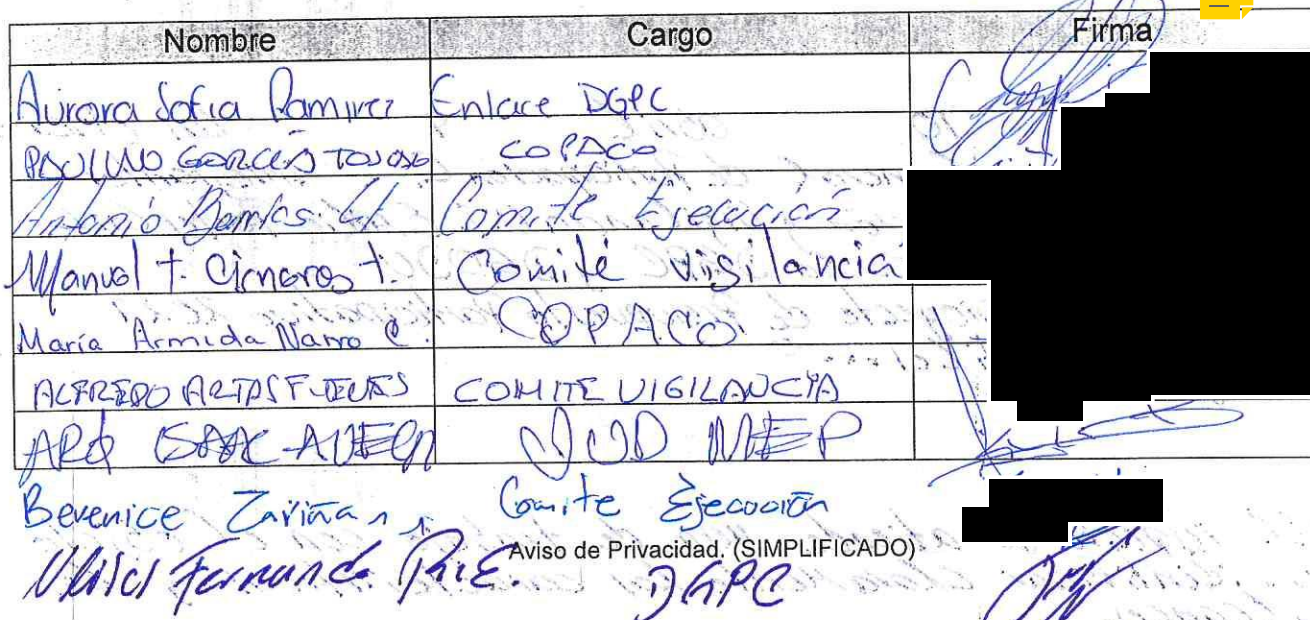 Nombre Cargo Firma
Aurora Sofia Ramirez Enlace DGPC
PAULINO GARCES COPACO
Antonio Comité Ejecución
Manuel T. Cisneros T. Comité Vigilancia
María Armida Narro C. COPACO
ALFREDO ARIAS COMITE VIGILANCIA
ARQ ISAAC JUD MEP
Berenice Zariñan Comite Ejecución
Aviso de Privacidad. (SIMPLIFICADO)
Fernando DGPC